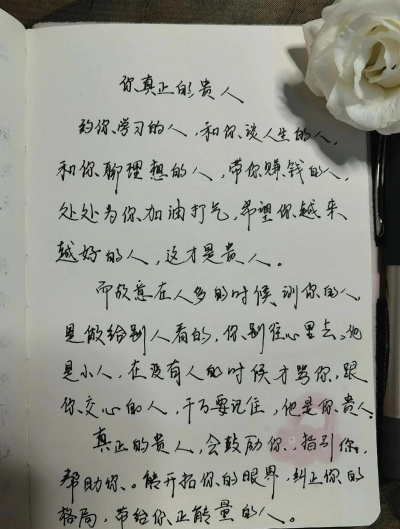 你真正的贵人
约你学习的人，和你谈人生的人，
和你聊理想的人，带你赚钱的人，
处处为你加油打气，希望你越来
越好的人，这才是贵人。
而故意在人多的时候训你的人。
是做给别人看的，你别往心里去，他
是小人，在没有人的时候才骂你，跟
你交心的人，千万要记住，他是你贵人。
真正的贵人，会鼓励你、指引你，
帮助你、。能开拓你的眼界，纠正你的
格局，带给你正能量的人。